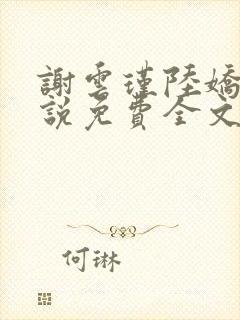 謝雲瑾陸嬌
說免費全文
何琳